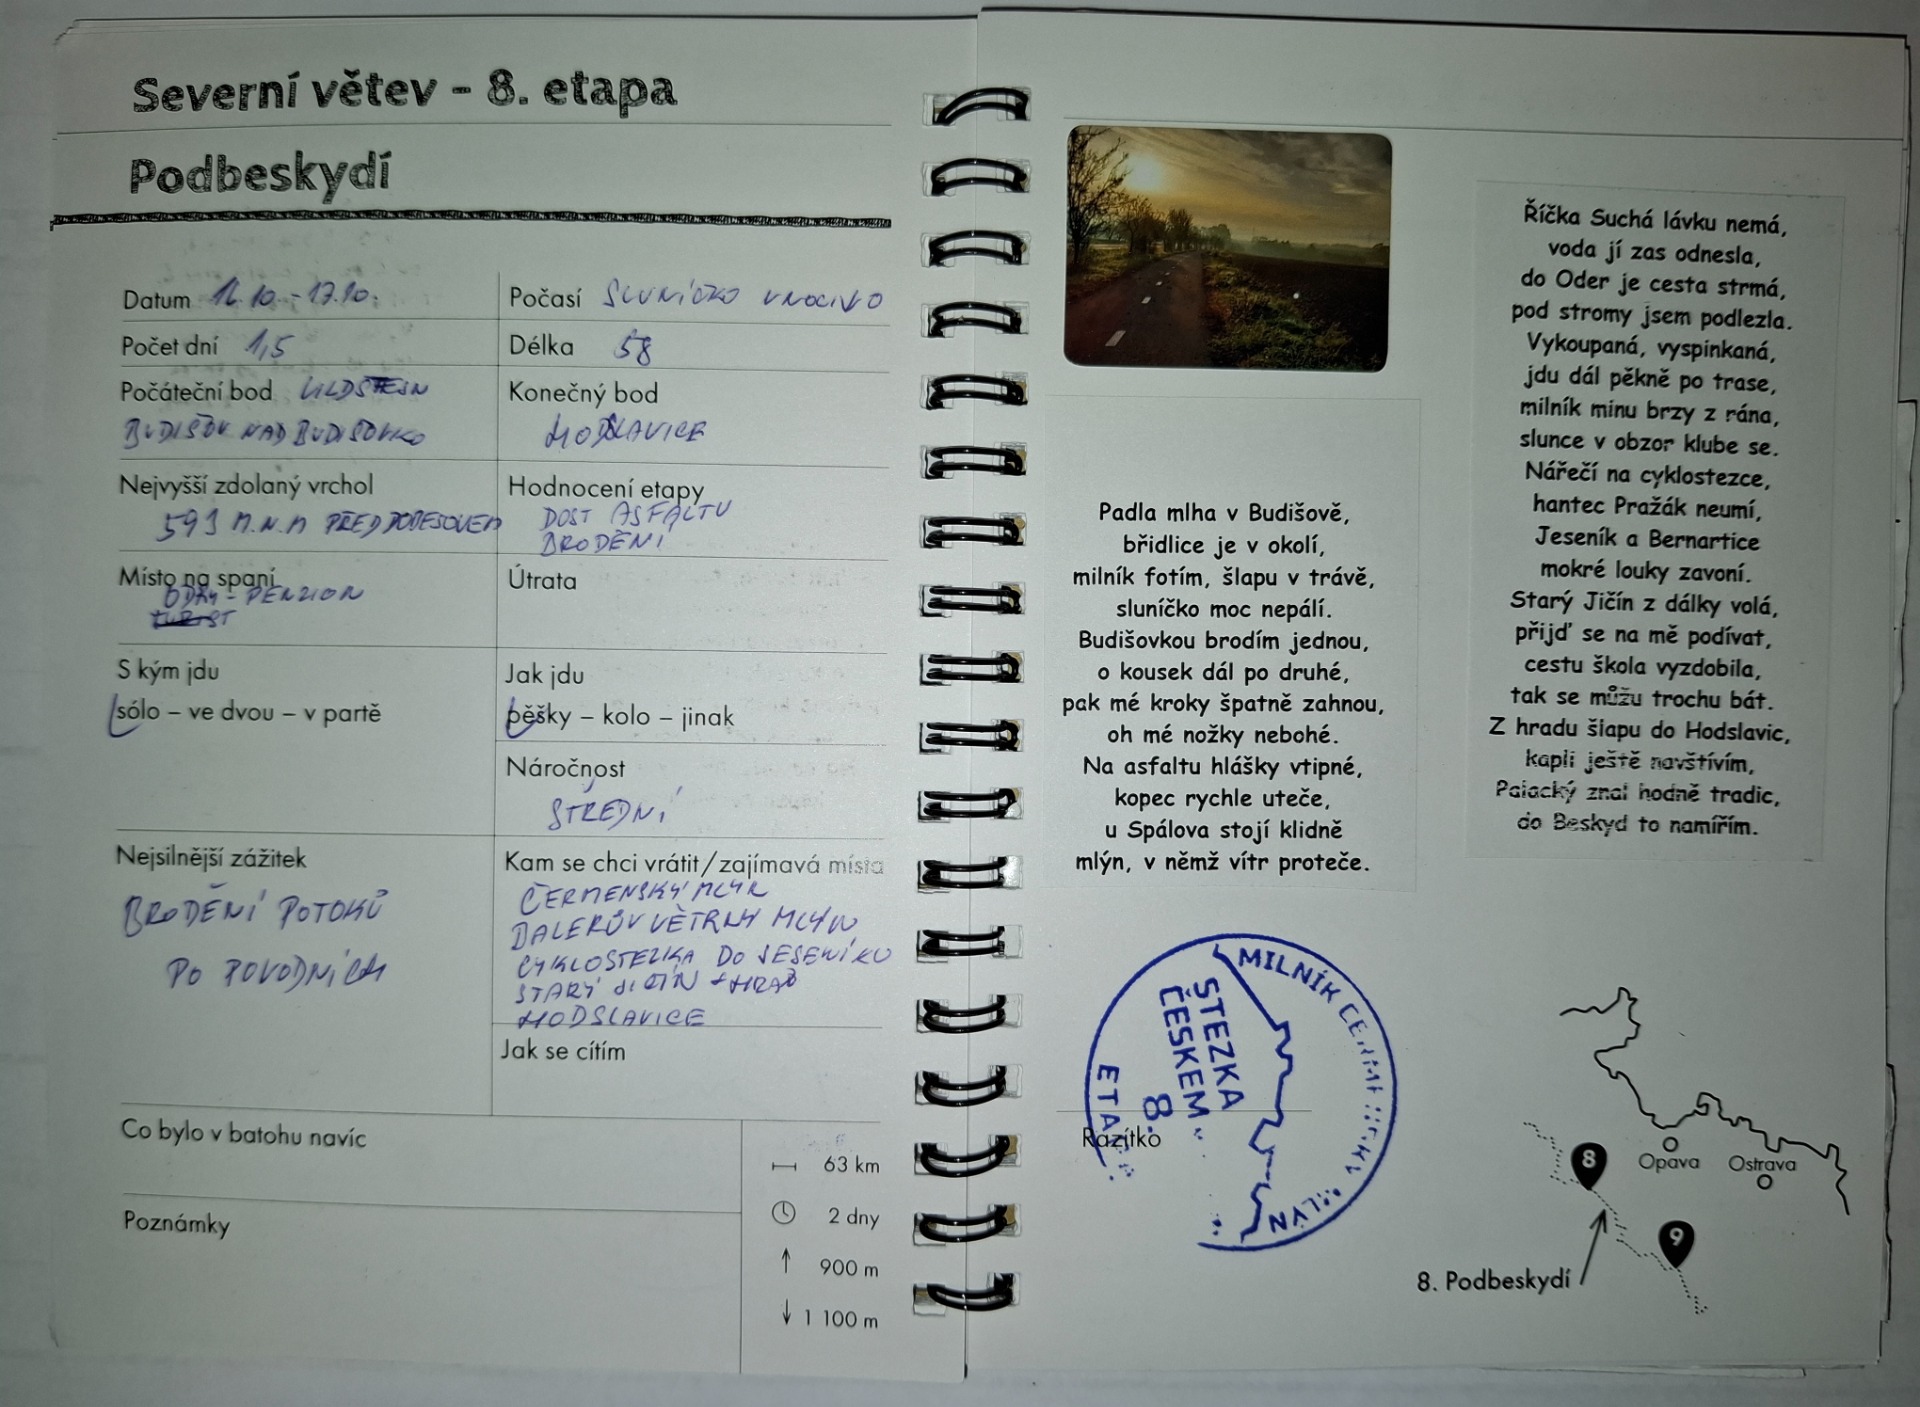 Severní větev - 8. etapa
Podbeskydí
Datum 16.10.-17.10.
Počasí SLUNÍČKO
Počet dní 1,5
Délka 58
Počáteční bod
BUDIŠOV NAD BUDIŠOVKO
Konečný bod
HODSLAVICE
Nejvyšší zdolaný vrchol
593 M.N.M PŘED
Hodnocení etapy
DOST ASFALTU
BRODĚNÍ
Místo na spaní
ODRY - PENZION
Útrata
S kým jdu
sólo – ve dvou – v partě
Jak jdu
pěšky – kolo – jinak
Náročnost
STŘEDNÍ
Nejsilnější zážitek
BRODĚNÍ POTOKŮ
PO POVODNÍCH
Kam se chci vrátit/zajímavá místa
ČERMENSKÝ MLÝN
VĚTRNÝ MLÝN
CYKLOSTEZKA DO JESENÍKU
STARÝ JIČÍN + HRAD
HODSLAVICE
Jak se cítím
Co bylo v batohu navíc
Poznámky
63 km
2 dny
900 m
1 100 m
Padla mlha v Budišově,
břidlice je v okolí,
milník fotím, šlapu v trávě,
sluníčko moc nepálí.
Budišovkou brodím jednou,
o kousek dál po druhé,
pak mé kroky špatně zahnou,
oh mé nožky nebohé.
Na asfaltu hlášky vtipné,
kopec rychle uteče,
u Spálova stojí klidně
mlýn, v němž vítr proteče.
Říčka Suchá lávku nemá,
voda jí zas odnesla,
do Oder je cesta strmá,
pod stromy jsem podlezla.
Vykoupaná, vyspinkaná,
jdu dál pěkně po trase,
milník minu brzy z rána,
slunce v obzor klube se.
Nářečí na cyklostezce,
hantec Pražák neumí,
Jeseník a Bernartice
mokré louky zavoní.
Starý Jičín z dálky volá,
přijď se na mě podívat,
cestu škola vyzdobila,
tak se můžu trochu bát.
Z hradu šlapu do Hodslavic,
kapli ještě navštívím,
Palacký znal hodně tradic,
do Beskyd to namířím.
MILNÍK ČERMENSKÝ MLÝN
STEZKA
ČESKEM
8.
ETAPA
Razítko
8
Opava
Ostrava
9
8. Podbeskydí